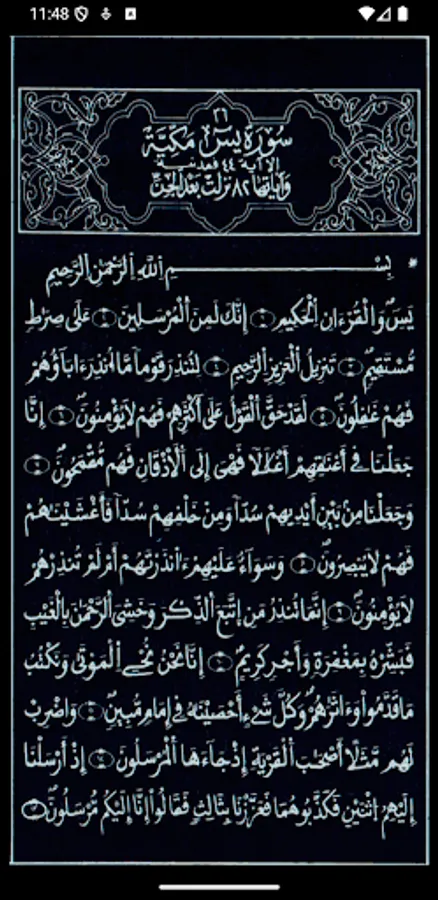 11:48
٣٦
سُورَةُ يسٓ مَكِّيَّة
إلا آية ٤٤ فمدنية
وَآيَاتهَا ٨٢ نَزَلَتْ بَعْدَ الجِنّ
بِسْمِ اِللَّهِ اِلرَّحْمَٰنِ اِلرَّحِيمِ
يَسٓ وَالْقُرْءَانِ اِلْحَكِيمِ إِنَّكَ لَمِنَ اَلْمُرْسَلِينَ عَلَىٰ صِرَٰطٍ
مُّسْتَقِيمٍ تَنزِيلُ اُلْعَزِيزِ اِلرَّحِيمِ لِتُنذِرَ قَوْماً مَّا أُنذِرَ ءَابَآؤُهُمْ
فَهُمْ غَٰفِلُونَ لَقَدْ حَقَّ اَلْقَوْلُ عَلَىٰ أَكْثَرِهِمْ فَهُمْ لَا يُؤْمِنُونَ إِنَّا
جَعَلْنَا فِے أَعْنَٰقِهِمْ أَغْلَٰلًا فَهِىَ إِلَى اَلْأَذْقَانِ فَهُم مُّقْمَحُونَ
وَجَعَلْنَا مِنۢ بَيْنِ أَيْدِيهِمْ سُدّاً وَمِنْ خَلْفِهِمْ سُدّاً فَأَغْشَيْنَٰهُمْ
فَهُمْ لَا يُبْصِرُونَ وَسَوَآءٌ عَلَيْهِمْ ءَآنذَرْتَهُمْ أَمْ لَمْ تُنذِرْهُمْ
لَا يُؤْمِنُونَ إِنَّمَا تُنذِرُ مَنِ اِتَّبَعَ اَلذِّكْرَ وَخَشِىَ اَلرَّحْمَٰنَ بِالْغَيْبِ
فَبَشِّرْهُ بِمَغْفِرَةٍ وَأَجْرٍ كَرِيمٍ إِنَّا نَحْنُ نُحْےِ اِلْمَوْتَىٰ وَنَكْتُبُ
مَا قَدَّمُواْ وَءَاثَٰرَهُمْ وَكُلَّ شَےْءٍ أَحْصَيْنَٰهُ فِے إِمَامٍ مُّبِينٍ وَاضْرِبْ
لَهُم مَّثَلًا أَصْحَٰبَ اَلْقَرْيَةِ إِذْ جَآءَهَا اَلْمُرْسَلُونَ إِذْ أَرْسَلْنَا
إِلَيْهِمُ اُثْنَيْنِ فَكَذَّبُوهُمَا فَعَزَّزْنَا بِثَالِثٍ فَقَالُواْ إِنَّا إِلَيْكُم مُّرْسَلُونَ